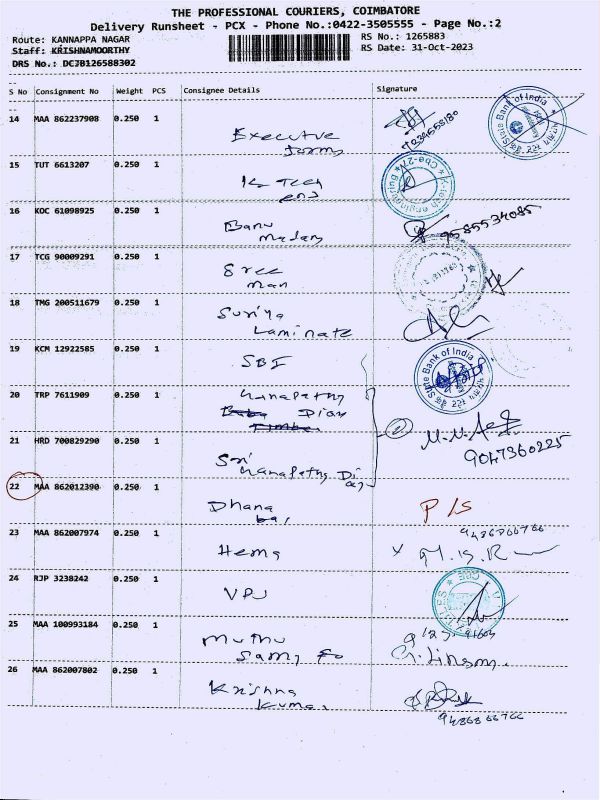 THE PROFESSIONAL COURIERS, COIMBATORE
Delivery Runsheet - PCX - Phone No.:0422-3505555 - Page No.:2
Route: KANNAPPA NAGAR
RS No.: 1265883
Staff: KRISHNAMOORTHY
RS Date: 31-Oct-2023
DRS No.: DCJB126588302
S No Consignment No Weight PCS Consignee Details Signature
14 MAA 862237908 0.250 1
Executive
forms
State Bank of India
15 TUT 6613207 0.250 1
K Tech
Cbe-27
16 KOC 61098925 0.250 1
Banu
Madam
9585534085
17 TCG 90009291 0.250 1
Sree
man
18 TMG 200511679 0.250 1
Suriya
Laminate
19 KCM 12922585 0.250 1
SBI
State Bank of India
20 TRP 7611909 0.250 1
Ganapathy
Baba Diam
Timber
2
21 HRD 700829290 0.250 1
Sri
Ganapathy Di
9047360225
22 MAA 862012390 0.250 1
Dhana
bal
P/S
23 MAA 862007974 0.250 1
Hema
24 RJP 3238242 0.250 1
VPJ
25 MAA 100993184 0.250 1
Muthu
Samy
26 MAA 862007802 0.250 1
Krishna
Kumar